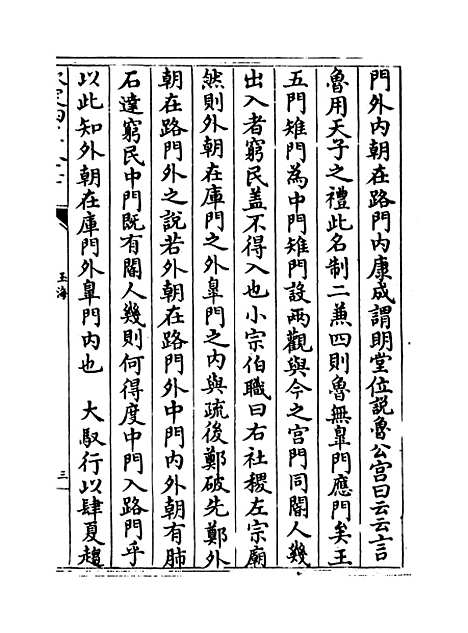 門外内朝在路門内康成謂明堂位説魯公宫曰云云言
魯用天子之禮此名制二兼四則魯無臯門應門矣王
五門雉門為中門雉門設兩觀與今之宫門同閽人幾
出入者窮民蓋不得入也小宗伯職曰右社稷左宗廟
然則外朝在庫門之外臯門之内與疏後鄭破先鄭外
朝在路門外之說若外朝在路門外中門内外朝有肺
石達窮民中門既有閽人幾則何得度中門入路門乎
以此知外朝在庫門外臯門内也　大馭行以肆夏趨
玉海
三